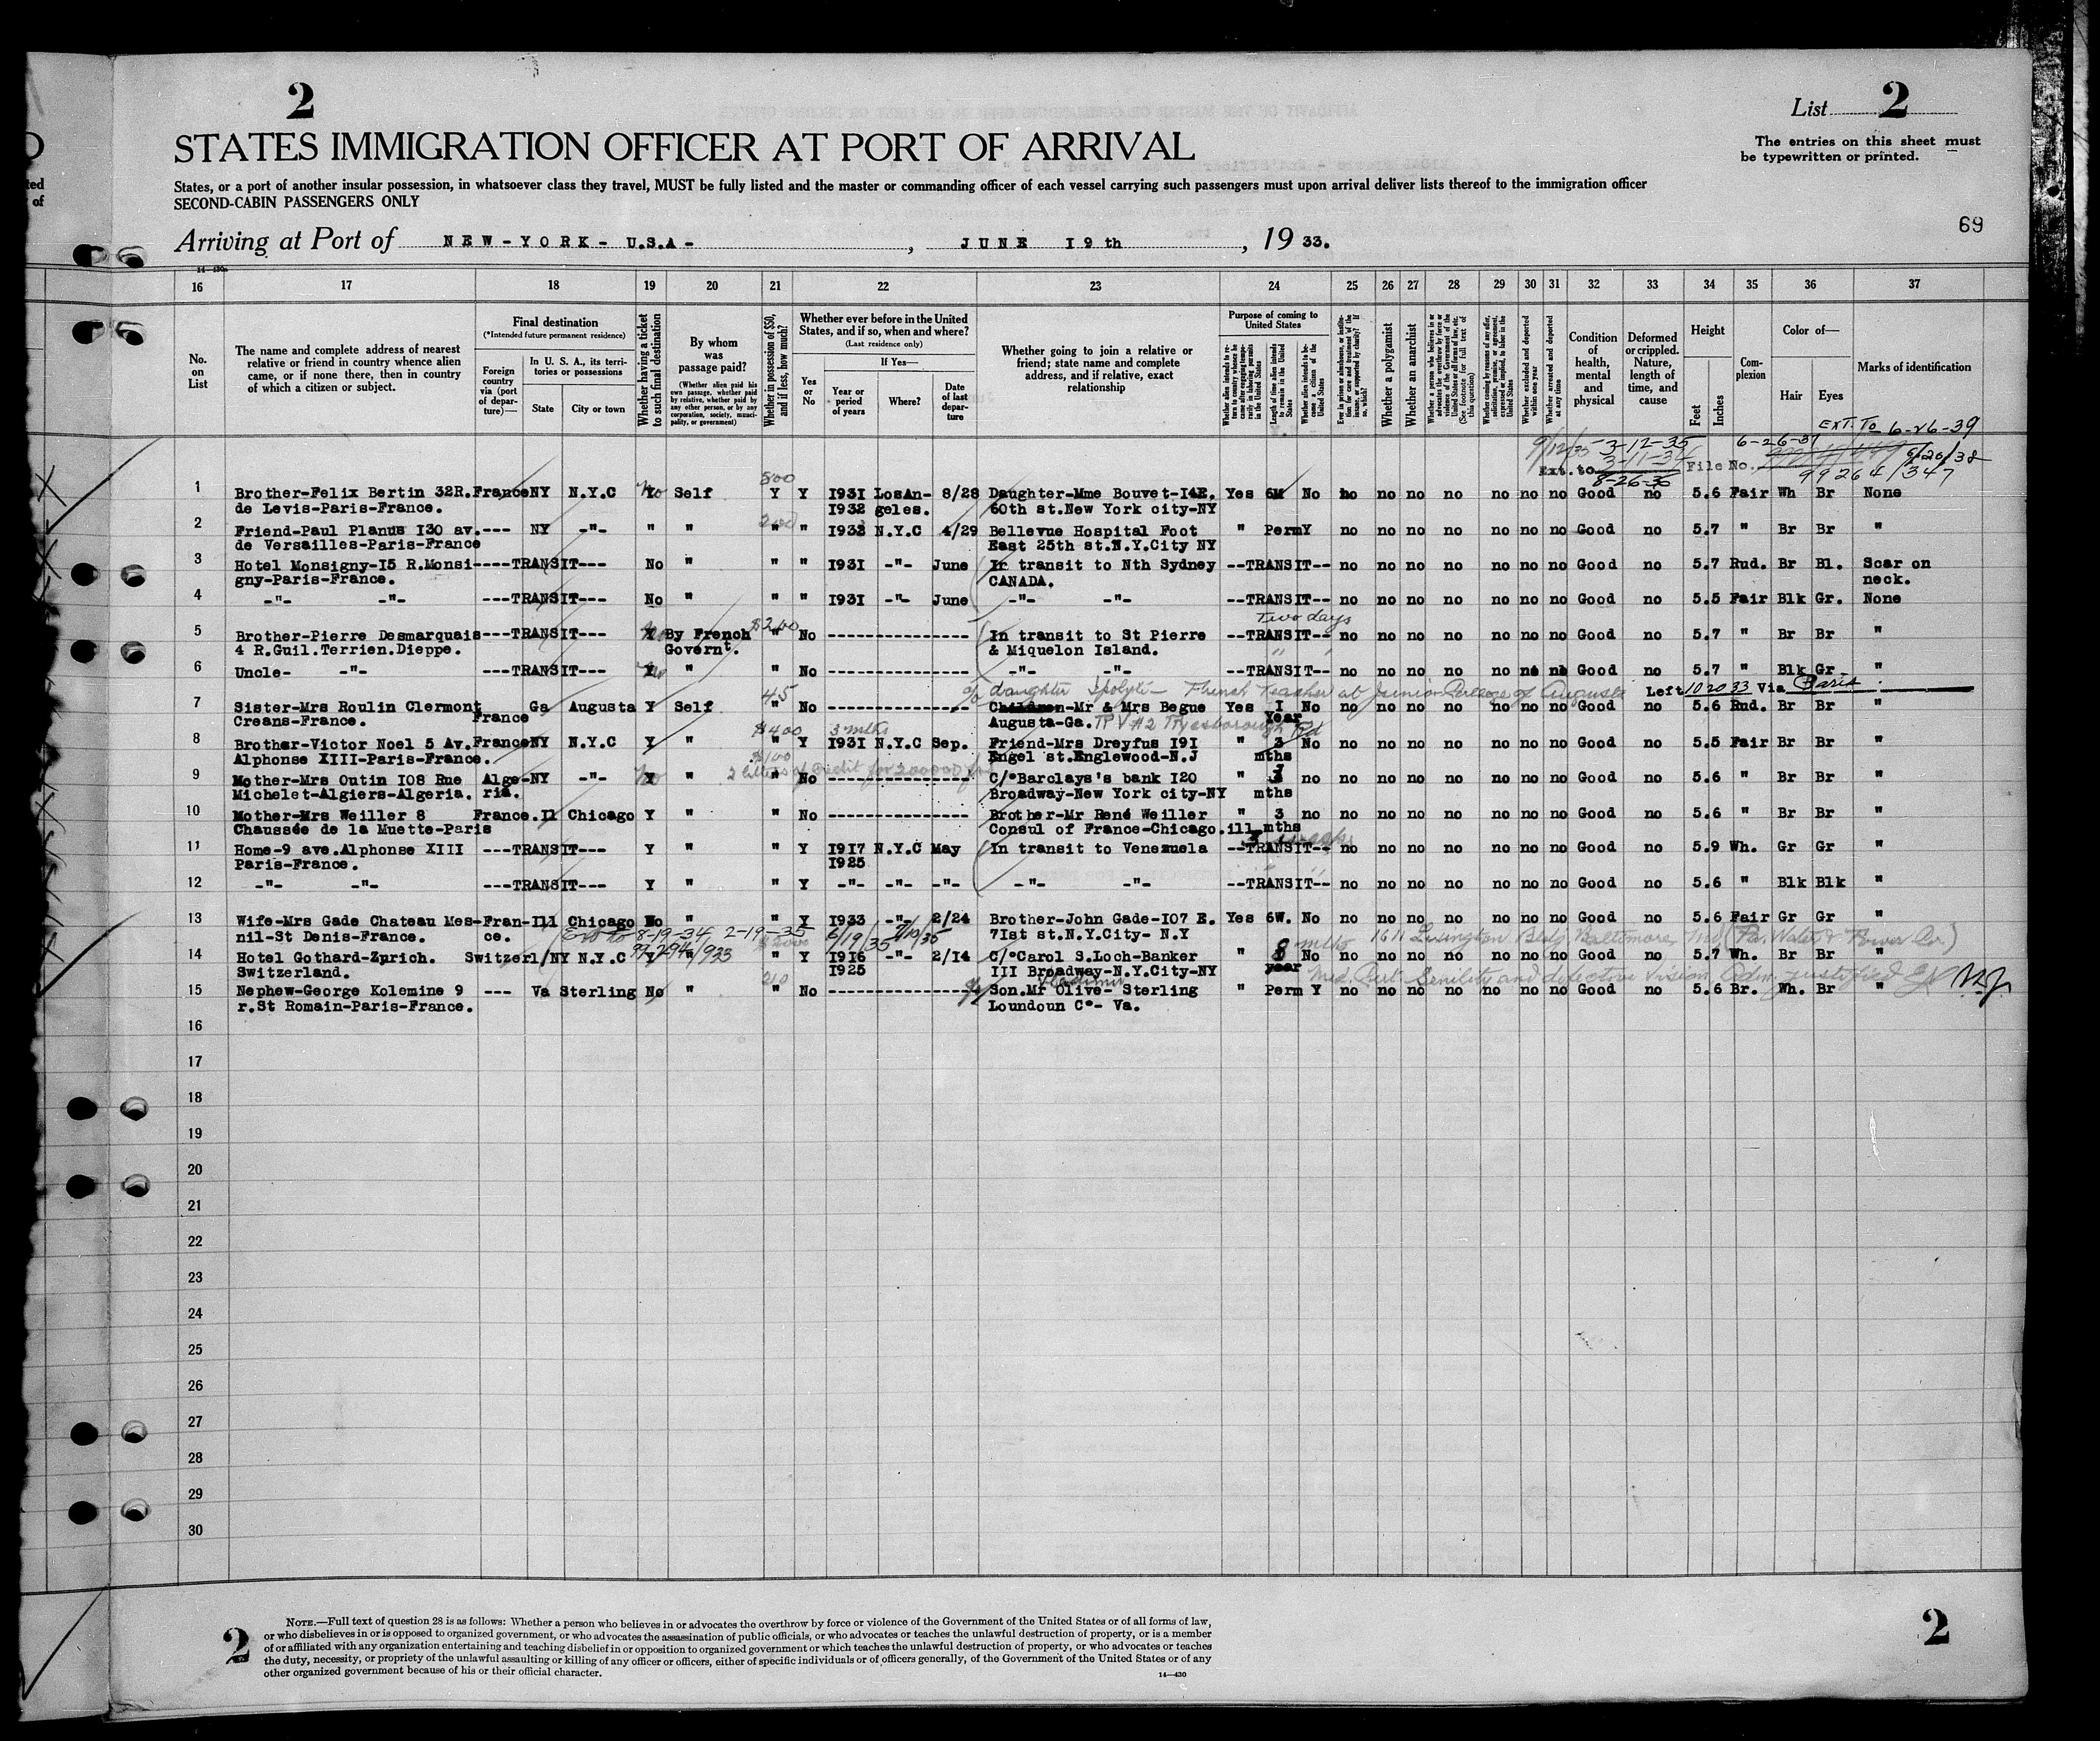 2
List 2
STATES IMMIGRATION OFFICER AT PORT OF ARRIVAL
The entries on this sheet must
be typewritten or printed.
States, or a port of another insular possession, in whatsoever class they travel, MUST be fully listed and the master or commanding officer of each vessel carrying such passengers must upon arrival deliver lists thereof to the immigration officer
SECOND-CABIN PASSENGERS ONLY
69
Arriving at Port of NEW-YORK- U.S.A- , JUNE I9th , 19 33.
14-430
16 17 18 19 20 21 22 23 24 25 26 27 28 29 30 31 32 33 34 35 36 37
No. on List
The name and complete address of nearest relative or friend in country whence alien came, or if none there, then in country of which a citizen or subject.
Final destination
(*Intended future permanent residence)
Foreign country via (port of departure)—
In U. S. A., its territories or possessions
State
City or town
Whether having a ticket to such final destination
By whom was passage paid?
(Whether alien paid his own passage, whether paid by relative, whether paid by any other person, or by any corporation, society, municipality, or government)
Whether in possession of $50, and if less, how much?
Whether ever before in the United States, and if so, when and where?
(Last residence only)
Yes or No
If Yes—
Year or period of years
Where?
Date of last departure
Whether going to join a relative or friend; state name and complete address, and if relative, exact relationship
Purpose of coming to United States
Whether alien intends to return to country whence he came after engaging temporarily in laboring pursuits in the United States
Length of time alien intends to remain in the United States
Whether alien intends to become a citizen of the United States
Ever in prison or almshouse, or institution for care and treatment of the insane, or supported by charity? If so, which?
Whether a polygamist
Whether an anarchist
(See footnote for full text of this question)
Whether excluded and deported within one year
Whether arrested and deported at any time
Condition of health, mental and physical
Deformed or crippled. Nature, length of time, and cause
Height
Feet
Inches
Complexion
Color of—
Hair
Eyes
Marks of identification
EXT. TO 6-26-39
9/12/35 3-12-35 6-26-37
Ext. to 3-11-34 File No. 6/26/38
8-26-36 99264/347
500
1 Brother-Felix Bertin 32R. France NY N.Y.C No Y Self Y Y I93I LosAn- 8/28 Daughter-Mme Bouvet-I4E. Yes 6M No no no no no no no no Good no 5.6 Fair Wh Br None
de Levis-Paris-France. I932 geles. 60th st.New York city-NY
200
2 Friend-Paul Planus I30 av.--- NY -"- " " " " I932 N.Y.C 4/29 Bellevue Hospital Foot " Perm Y no no no no no no no Good no 5.7 " Br Br "
de Versailles-Paris-France East 25th st.N.Y.City NY
3 Hotel Monsigny-I5 R.Monsi----TRANSIT--- No " " " I93I -"- June In transit to Nth Sydney --TRANSIT-- no no no no no no no Good no 5.7 Rud. Br Bl. Scar on
gny-Paris-France. CANADA. neck.
4 -"- -"- ---TRANSIT--- No " " " I93I -"- June -"- -"- --TRANSIT-- no no no no no no no Good no 5.5 Fair Blk Gr. None
$200 Two days
5 Brother-Pierre Desmarquais---TRANSIT--- No By French " No --------------- In transit to St Pierre --TRANSIT-- no no no no no no no Good no 5.7 " Br Br "
4 R.Guil.Terrien.Dieppe. Governt. & Miquelon Island.
6 Uncle- -"- ---TRANSIT--- No " " No --------------- -"- -"- --TRANSIT-- no no no no no no no Good no 5.7 " Blk Gr "
45 c/o daughter French Teacher at Junior College of Augusta Left 10 20 33 Via Paris
7 Sister-Mrs Roulin Clermont France Ga Augusta Y Self " No --------------- Children-Mr & Mrs Begue Yes I No no no no no no no no Good no 5.6 Rud. Br Br "
Creans-France. Augusta-Ga. Year
$400 3 mths
8 Brother-Victor Noel 5 Av. France NY N.Y.C Y " " Y I93I N.Y.C Sep. Friend-Mrs Dreyfus I9I " 3 No no no no no no no no Good no 5.5 Fair Br Br "
Alphonse XIII-Paris-France. Engel st.Englewood-N.J mths
$100
2 letters of Credit for 200000
9 Mother-Mrs Outin I08 Rue Alge- NY -"- No " " No --------------- C/°Barclays's bank I20 " 3 no no no no no no no no Good no 5.6 " Br Br "
Michelet-Algiers-Algeria. ria. Broadway-New York city-NY mths
10 Mother-Mrs Weiller 8 France. Il Chicago Y " " No --------------- Brother-Mr René Weiller " 3 no no no no no no no no Good no 5.6 " Br Br "
Chaussée de la Muette-Paris Consul of France-Chicago.ill mths
3 weeks
11 Home-9 ave.Alphonse XIII ---TRANSIT--- Y " " Y I9I7 N.Y.C May In transit to Venezuela --TRANSIT-- no no no no no no no Good no 5.9 Wh. Gr Gr "
Paris-France. I925
12 -"- -"- ---TRANSIT--- Y " " Y -"- -"- -"- -"- -"- --TRANSIT-- no no no no no no no Good no 5.6 " Blk Blk "
13 Wife-Mrs Gade Chateau Mes-Fran- Ill Chicago No " " Y I933 -"- 2/24 Brother-John Gade-I07 E. Yes 6W. No no no no no no no no Good no 5.6 Fair Gr Gr "
nil-St Denis-France. ce. 7Ist st.N.Y.City- N.Y
Ext to 8-19-34 2-19-35 6/19/35 mths 1611 Lexington Bldg Baltimore Md (Pa. Water & Power Co.)
99294/933 $2000
14 Hotel Gothard-Zurich. Switzerl/NY N.Y.C Y " " Y I9I6 -"- 2/I4 C/°Carol S.Loch-Banker " 8 No no no no no no no no Good no 5.7 Wh. Br Br "
Switzerland. I925 III Broadway-N.Y.City-NY year
210 Vladimir Med. Cert. Senility and defective vision Adm. justified
15 Nephew-George Kolemine 9 --- Va Sterling No " " No --------------- Son.Mr Olive- Sterling " Perm Y no no no no no no no Good no 5.6 Br. Wh. Br "
r.St Romain-Paris-France. Loundoun C°- Va.
16
17
18
19
20
21
22
23
24
25
26
27
28
29
30
NOTE.—Full text of question 28 is as follows: Whether a person who believes in or advocates the overthrow by force or violence of the Government of the United States or of all forms of law,
or who disbelieves in or is opposed to organized government, or who advocates the assassination of public officials, or who advocates or teaches the unlawful destruction of property, or is a member
of or affiliated with any organization entertaining and teaching disbelief in or opposition to organized government or which teaches the unlawful destruction of property, or who advocates or teaches
the duty, necessity, or propriety of the unlawful assaulting or killing of any officer or officers, either of specific individuals or of officers generally, of the Government of the United States or of any
other organized government because of his or their official character.
14—430
2
2